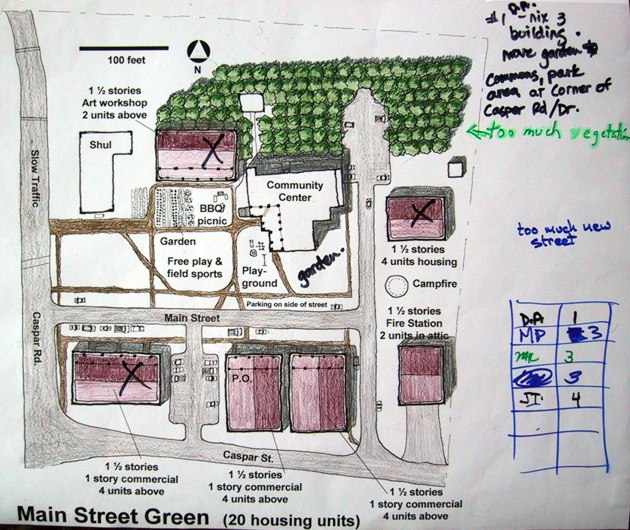 D.A.
#1 - nix 3
building.
move garden to
commons, park
area at corner of
Caspar Rd/Dr.
too much vegetation
100 feet
N
1 ½ stories
Art workshop
2 units above
X
Shul
Slow Traffic
Community
Center
BBQ/
picnic
Garden
Free play &
field sports
Play-
ground
garden.
X
1 ½ stories
4 units housing
Campfire
too much new
street
Parking on side of street
Main Street
1 ½ stories
Fire Station
2 units in attic
Caspar Rd.
X
P.O.
D.A 1
MP 3
3
3
JT. 4
Caspar St.
1 ½ stories
1 story commercial
4 units above
1 ½ stories
1 story commercial
4 units above
1 ½ stories
1 story commercial
4 units above
Main Street Green (20 housing units)